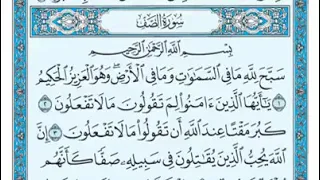 سُورَةُ الصَّفِّ
بِسْمِ اللَّهِ الرَّحْمَٰنِ الرَّحِيمِ
سَبَّحَ لِلَّهِ مَا فِي السَّمَاوَاتِ وَمَا فِي الْأَرْضِ ۖ وَهُوَ الْعَزِيزُ الْحَكِيمُ
١ يَا أَيُّهَا الَّذِينَ آمَنُوا لِمَ تَقُولُونَ مَا لَا تَفْعَلُونَ ٢
كَبُرَ مَقْتًا عِندَ اللَّهِ أَن تَقُولُوا مَا لَا تَفْعَلُونَ ٣ إِنَّ
اللَّهَ يُحِبُّ الَّذِينَ يُقَاتِلُونَ فِي سَبِيلِهِ صَفًّا كَأَنَّهُم